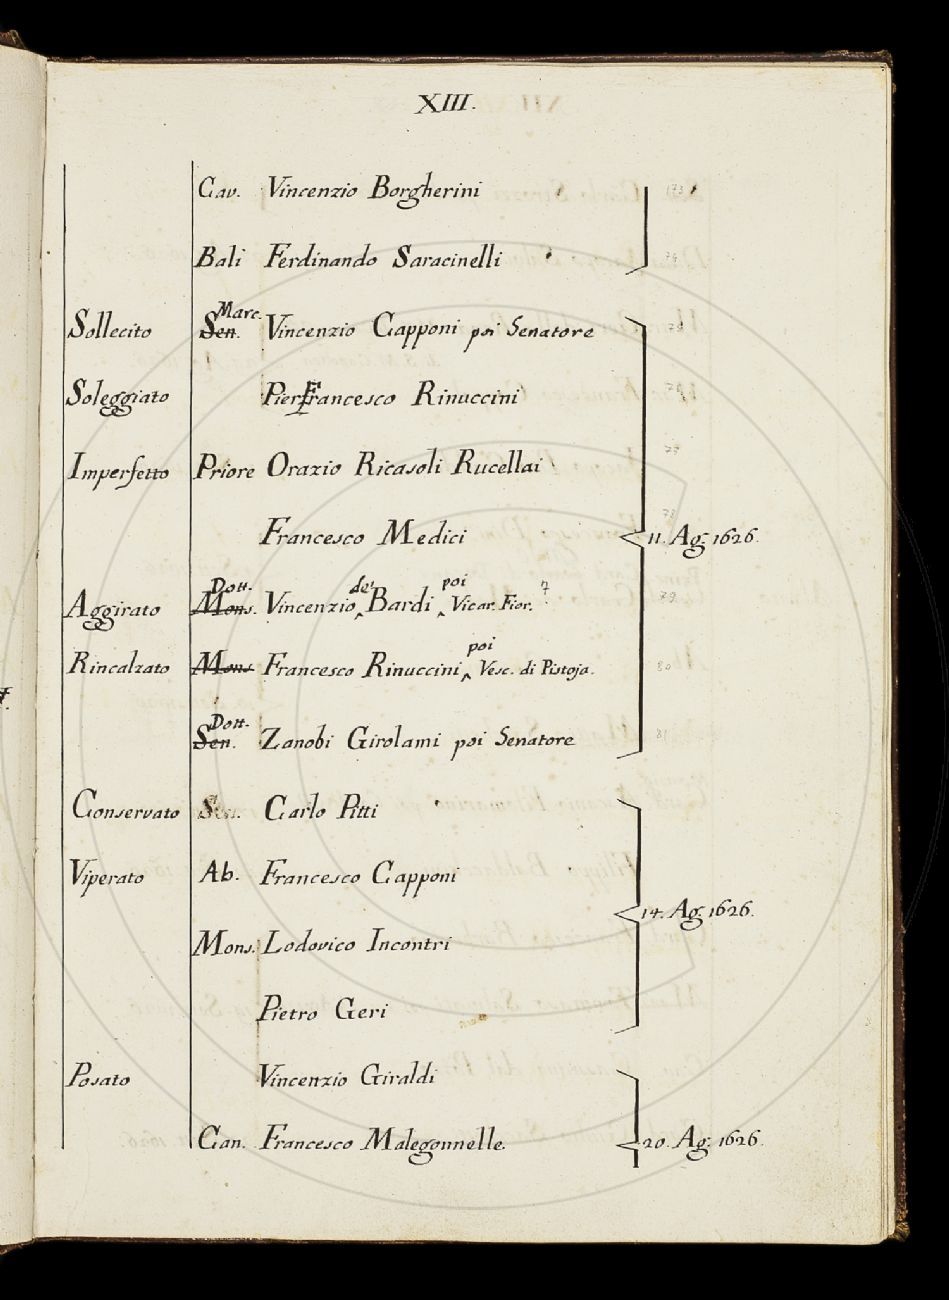 XIII.
Cav. Vincenzio Borgherini
Bali Ferdinando Saracinelli
Sollecito Sen. Marc. Vincenzio Capponi poi Senatore
Soleggiato Pier Francesco Rinuccini
Imperfetto Priore Orazio Ricasoli Rucellai
Francesco Medici 11. Ag. 1626.
Aggirato Mons. Dott. Vincenzio de' Bardi poi Vicar. Fior.
Rincalzato Mons. Francesco Rinuccini poi Vesc. di Pistoja.
Sen. Dott. Zanobi Girolami poi Senatore
Conservato Sen. Carlo Pitti
Viperato Ab. Francesco Capponi
14. Ag. 1626.
Mons. Lodovico Incontri
Pietro Geri
Posato Vincenzio Giraldi
Can. Francesco Malegonnelle. 20. Ag. 1626.